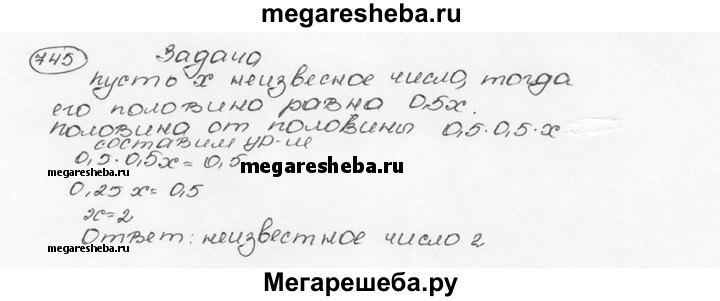 megaresheba.ru
745 Задача
пусть х неизвесное число, тогда
его половина равна 0,5х.
половина от половины 0,5·0,5·х
составим ур-ие
0,5·0,5х=0,5
megaresheba.ru
megaresheba.ru
0,25х=0,5
х=2
megaresheba.ru
Ответ: неизвестное число 2
megaresheba.ru
Мегарешеба.ру